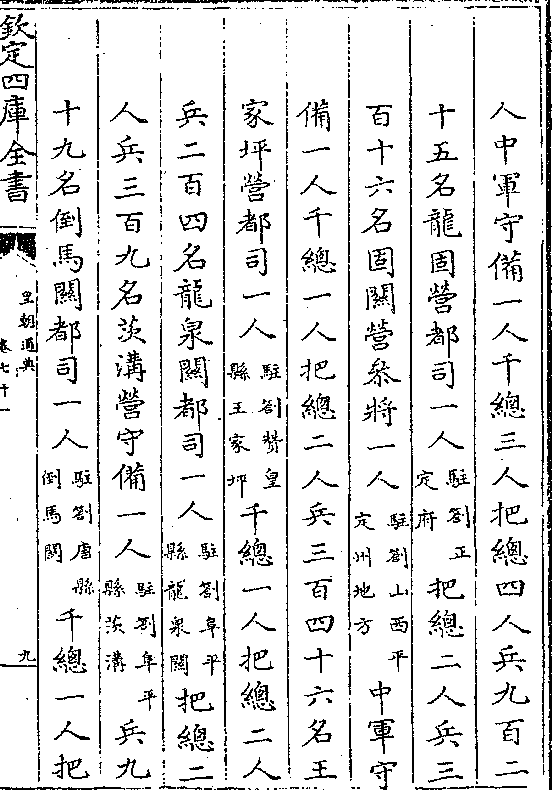 人中軍守備一人千總三人把總四人兵九百二
十五名龍固營都司一人駐劄正定府把總二人兵三
百十六名固關營叅將一人駐劄山西平定州地方中軍守
備一人千總一人把總二人兵三百四十六名王
家坪營都司一人駐劄贊皇縣王家坪千總一人把總二人
兵二百四名龍泉關都司一人駐劄阜平縣龍泉關把總二
人兵三百九名茨溝營守備一人駐劄阜平縣茨溝兵九
十九名倒馬關都司一人駐劄唐縣倒馬關千總一人把
欽定四庫全書
皇朝通典
卷七十一
九